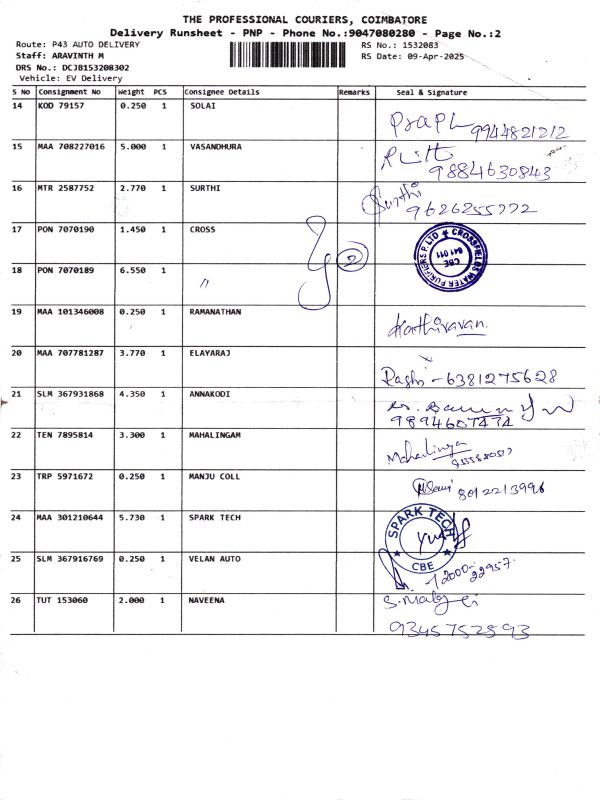 THE PROFESSIONAL COURIERS, COIMBATORE
Delivery Runsheet - PNP - Phone No.:9047080280 - Page No.:2
Route: P43 AUTO DELIVERY RS No.: 1532083
Staff: ARAVINTH M RS Date: 09-Apr-2025
DRS No.: DCJB153208302
Vehicle: EV Delivery
S No Consignment No Weight PCS Consignee Details Remarks Seal & Signature
14 KOD 79157 0.250 1 SOLAI
9944821212
15 MAA 708227016 5.000 1 VASANDHURA
9884630843
16 MTR 2587752 2.770 1 SURTHI Surthi
9626255772
17 PON 7070190 1.450 1 CROSS 2 CROSSFIELDS WATER PURIFIERS P. LTD CBE 641 011
18 PON 7070189 6.550 1 "
19 MAA 101346008 0.250 1 RAMANATHAN
Karthiravan.
20 MAA 707781287 3.770 1 ELAYARAJ
- 6381275628
21 SLM 367931868 4.350 1 ANNAKODI
9894607474
22 TEN 7895814 3.300 1 MAHALINGAM Mahalinga
23 TRP 5971672 0.250 1 MANJU COLL
8012213996
24 MAA 301210644 5.730 1 SPARK TECH SPARK TECH CBE
25 SLM 367916769 0.250 1 VELAN AUTO
26 TUT 153060 2.000 1 NAVEENA
9345752593